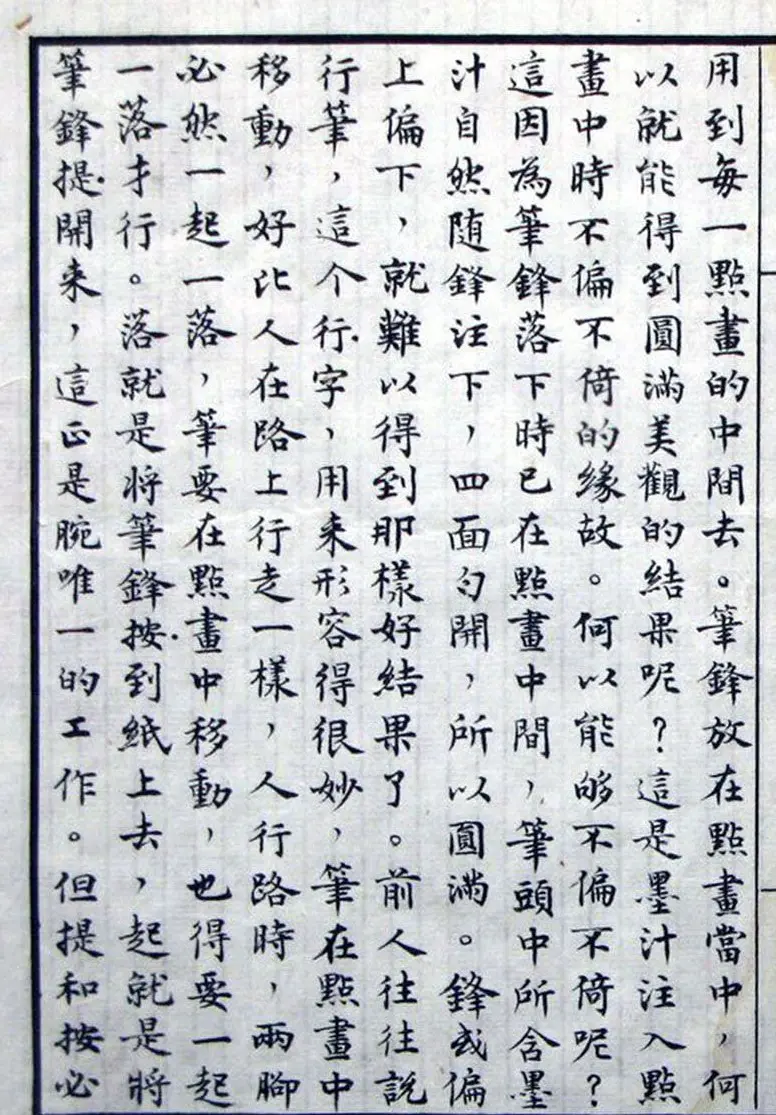 用到每一點畫的中間去。筆鋒放在點畫當中，何
以就能得到圓滿美觀的結果呢？這是墨汁注入點
畫中時不偏不倚的緣故。何以能够不偏不倚呢？
這因為筆鋒落下時已在點畫中間，筆頭中所含墨
汁自然随鋒注下，四面匀開，所以圓滿。鋒或偏
上偏下，就難以得到那樣好結果了。前人往往說
行筆，這个行字，用来形容得很妙，筆在點畫中
移動，好比人在路上行走一樣，人行路時，兩腳
必然一起一落，筆要在點畫中移動，也得要一起
一落才行。落就是将筆鋒按到紙上去，起就是将
筆鋒提開来，這正是腕唯一的工作。但提和按必